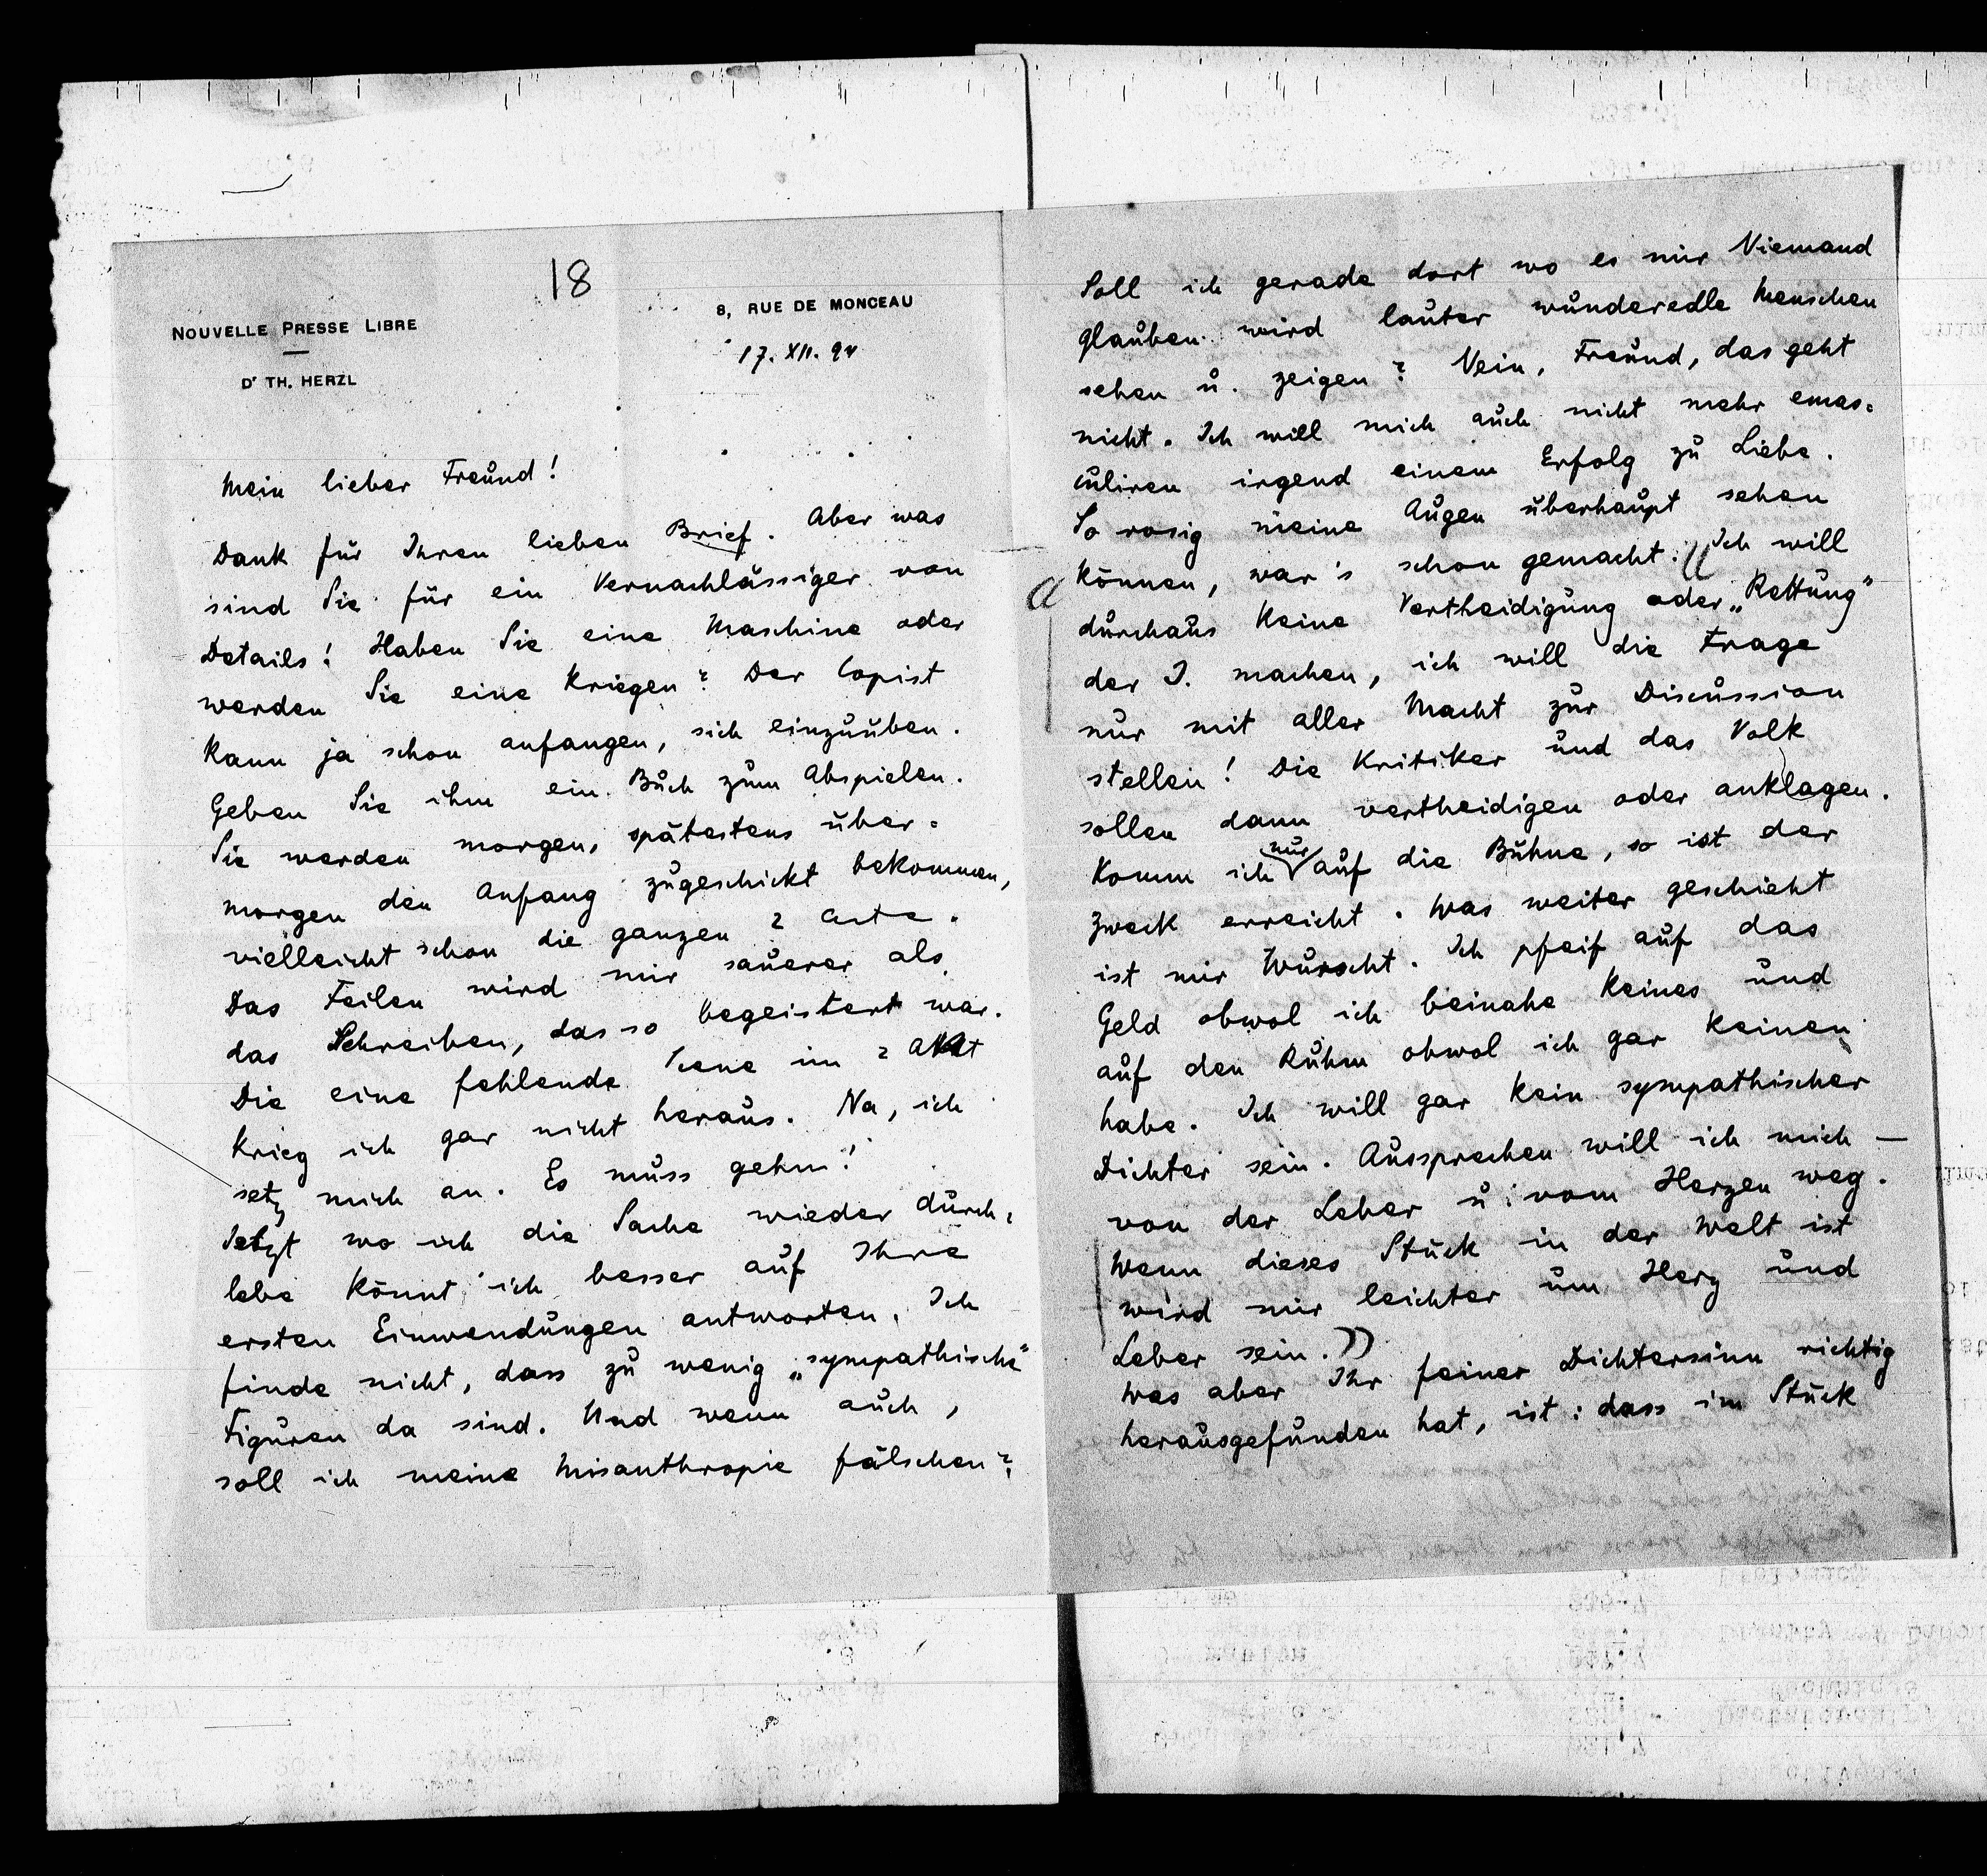 18
NOUVELLE PRESSE LIBRE
Dr TH. HERZL
8, RUE DE MONCEAU
17. XII. 94
Mein lieber Freund!
Dank für Ihren lieben Brief. Aber was
sind Sie für ein Vernachlässiger von
Details! Haben Sie eine Maschine oder
werden Sie eine kriegen? Der Copist
kann ja schon anfangen, sich einzuüben.
Geben Sie ihm ein Buch zum Abspielen.
Sie werden morgen, spätestens über-
morgen den Anfang zugeschickt bekommen,
vielleicht schon die ganzen 2 Acte.
Das Feilen wird mir sauerer als
das Schreiben, das so begeistert war.
Die eine fehlende Scene im 2 Akt
krieg ich gar nicht heraus. Na, ich
setz mich an. Es muss gehn!
Jetzt wo ich die Sache wieder durch-
lebe könnt' ich besser auf Ihre
ersten Einwendungen antworten. Ich
finde nicht, dass zu wenig „sympathische“
Figuren da sind. Und wenn auch,
soll ich meine Misanthropie fälschen?
Soll ich gerade dort wo es mir Niemand
glauben wird lauter wunderedle Menschen
sehen u. zeigen? Nein, Freund, das geht
nicht. Ich will mich auch nicht mehr emas-
culiren irgend einem Erfolg zu Liebe.
So rosig meine Augen überhaupt sehen
können, war's schon gemacht. (( Ich will
durchaus keine Vertheidigung oder „Rettung“
der J. machen, ich will die Frage
nur mit aller Macht zur Discussion
stellen! Die Kritiker und das Volk
sollen dann vertheidigen oder anklagen.
Komm ich nur auf die Bühne, so ist der
Zweck erreicht. Was weiter geschieht
ist mir Wurscht. Ich pfeif auf das
Geld obwol ich beinahe keines und
auf den Ruhm obwol ich gar keinen
habe. Ich will gar kein sympathischer
Dichter sein. Aussprechen will ich mich —
von der Leber u. vom Herzen weg.
Wenn dieses Stück in der Welt ist
wird mir leichter um Herz und
Leber sein. ))
Was aber Ihr feiner Dichtersinn richtig
herausgefunden hat, ist: dass im Stück